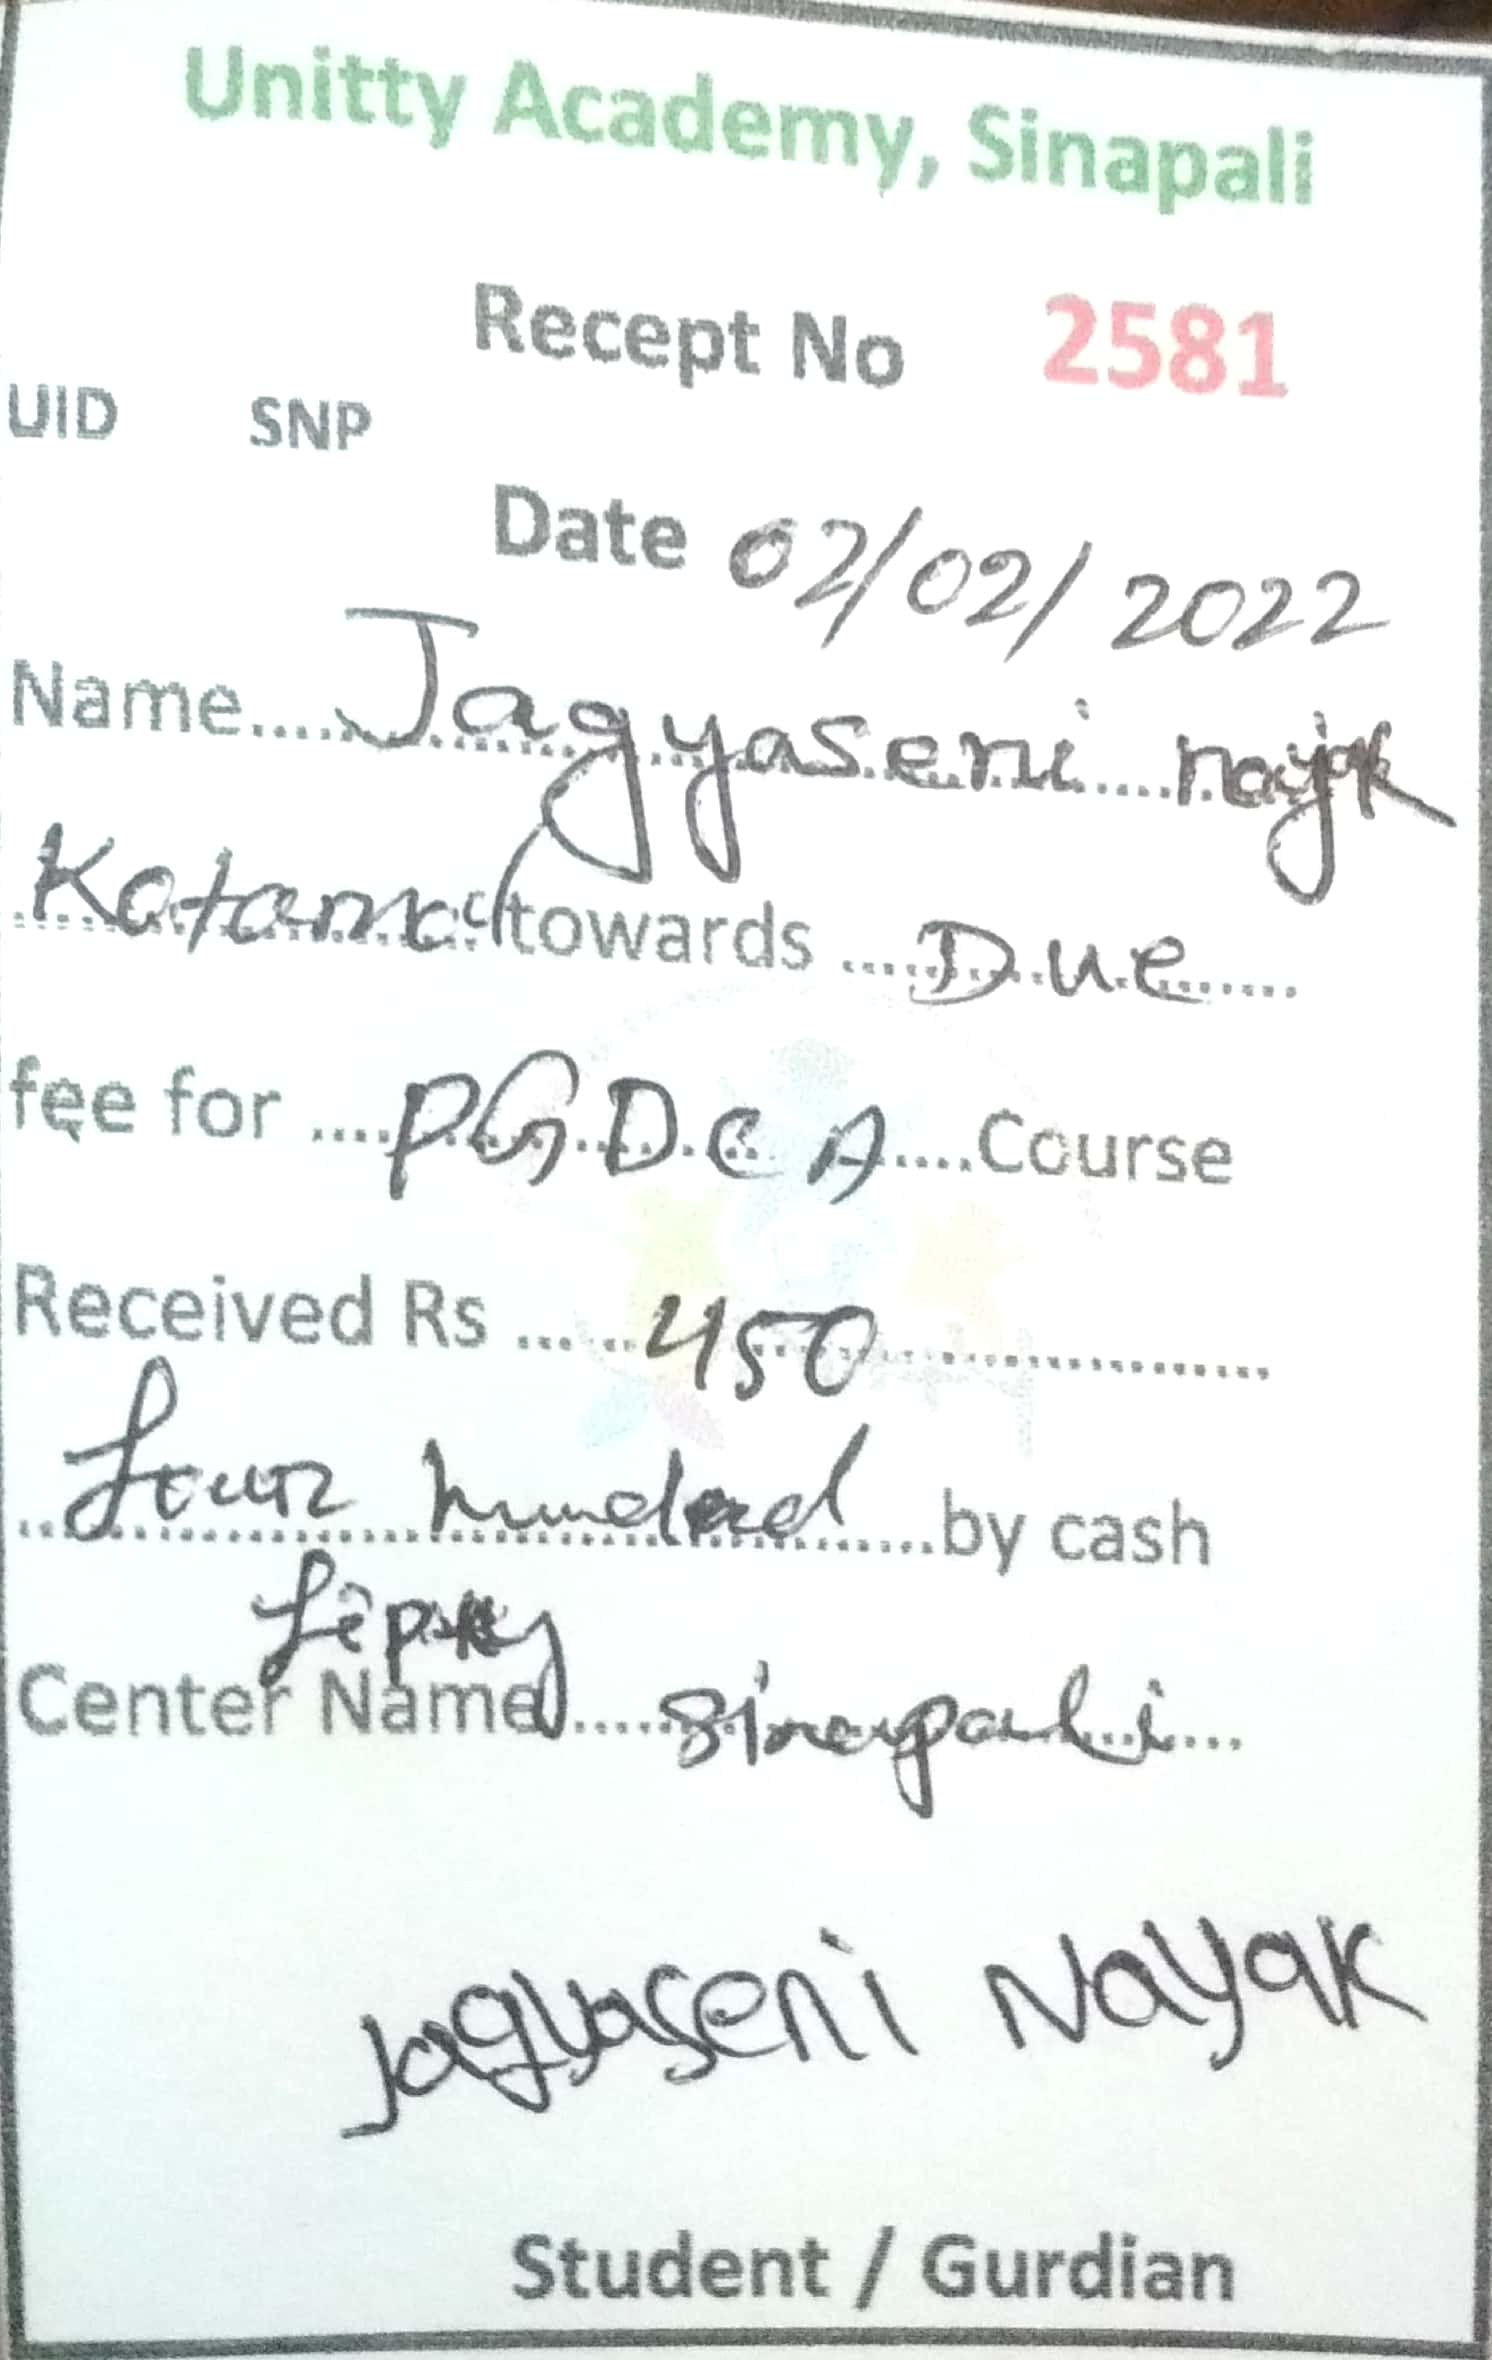 Unitty Academy, Sinapali
Recept No 2581
UID SNP
Date 02/02/2022
Name.... Jagyaseni nayak
Katamal towards .... Due ....
fee for .... P.G.D.C.A .... Course
Received Rs .... 450 ....
four hundred .... by cash
Center Name .... Sinapali ....
Jagyaseni Nayak
Student / Gurdian